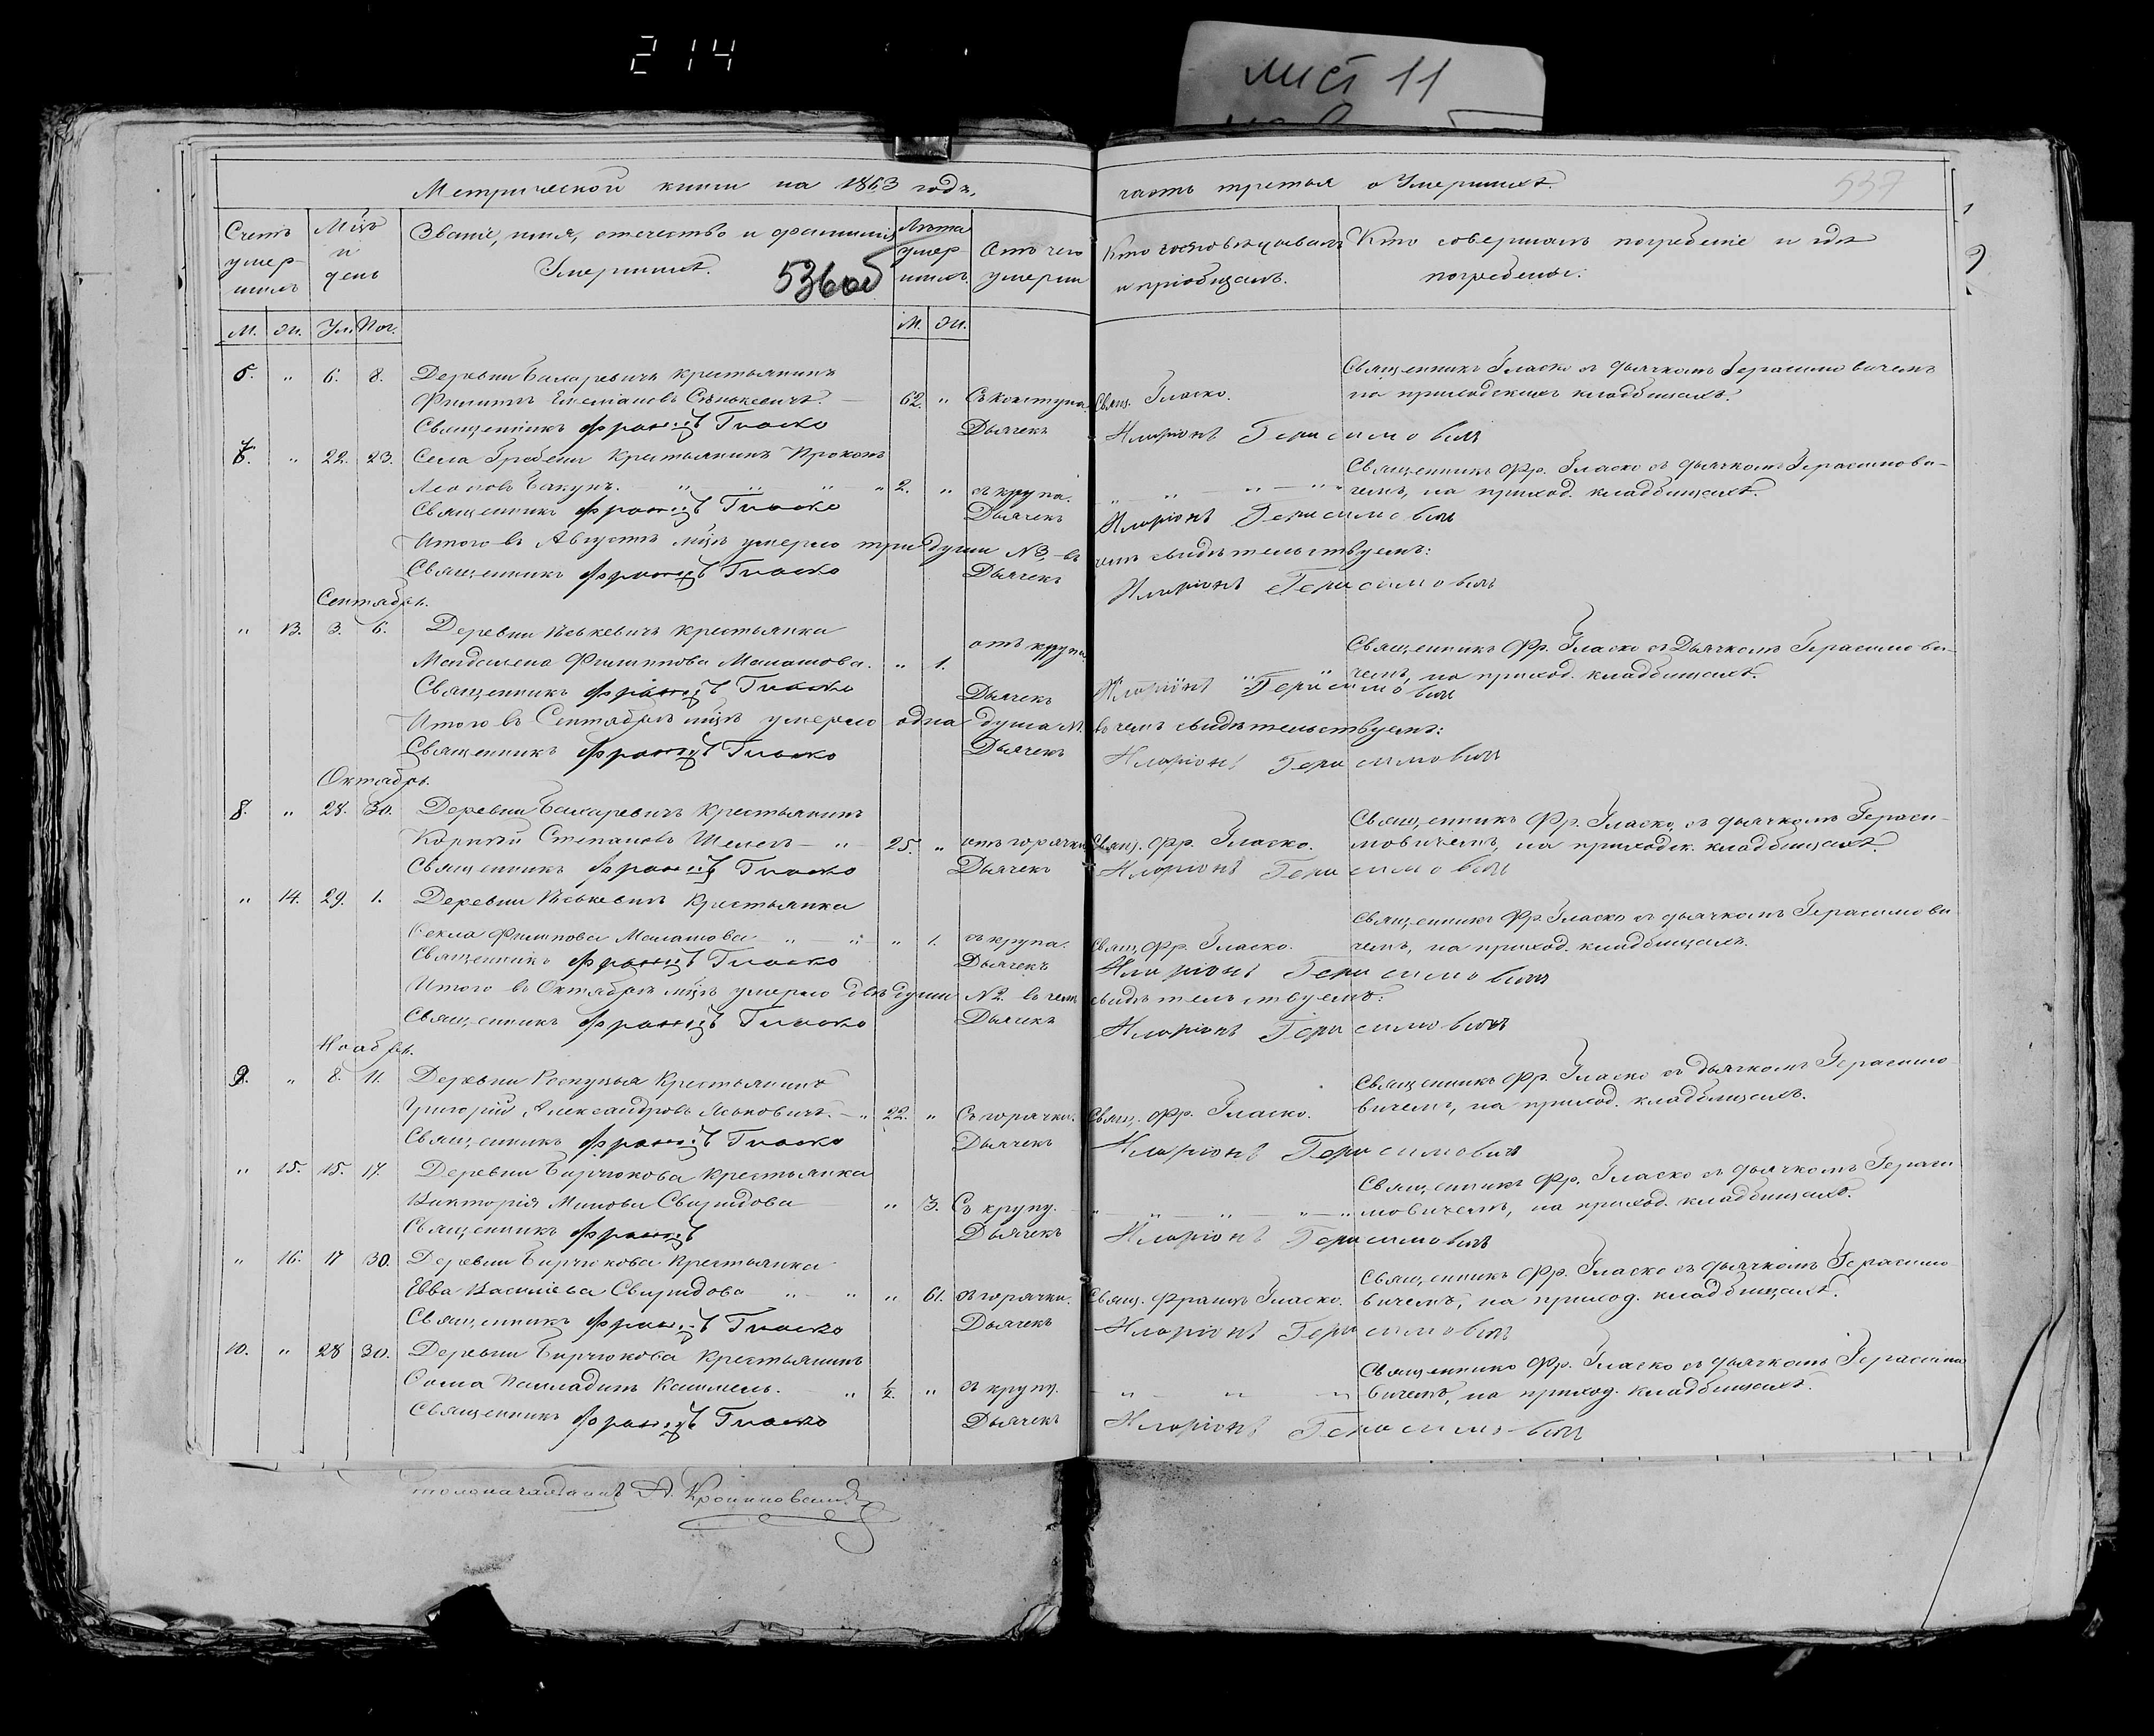 214
лист 11
Метрической книги на 1863 годъ,
часть третья о Умершихъ.
537
Счетъ умершихъ
Мѣцъ и день
Званіе, имя, отечество и фамилія Умершихъ.
536об
Лѣта умершихъ.
Отъ чего умерли
Кто исповѣдывалъ и пріобщалъ.
Кто совершалъ погребеніе и гдѣ погребены.
М. Ж. Ум. Пог. М. Ж.
6. " 6. 8. Деревни Бакаревичъ крестьянинъ
Священникъ Гласко съ дьячкомъ Герасимовичемъ
Филиппъ Сѣнькевичъ. 62. " Свящ. Гласко. на приходскихъ кладбищахъ.
Священникъ Францъ Гласко Дьячекъ Иларіонъ Герасимовичъ
7. " 22. 23. Села Гребени Крестьянинъ Прокопъ
Священникъ Фр. Гласко съ дьячкомъ Герасимови-
Бакунъ. " " " " 2. " съ крупа. " " " " чемъ, на приход. кладбищахъ.
Священникъ Францъ Гласко Дьячекъ Иларіонъ Герасимовичъ
Итого въ Августѣ мцѣ умерло три души №3, въ чемъ свидѣтельствуемъ:
Священникъ Францъ Гласко Дьячекъ Иларіонъ Герасимовичъ
Сентябрь.
" 13. 3. 6. Деревни крестьянка
Священникъ Фр. Гласко съ Дьячкомъ Герасимови-
Магдалена Филиппова Малашова. " 1. отъ крупа. " " чемъ, на приход. кладбищахъ.
Священникъ Францъ Гласко Дьячекъ Иларіонъ Герасимовичъ
Итого въ Сентябрѣ мцѣ умерло одна душа №1. въ чемъ свидѣтельствуемъ:
Священникъ Францъ Гласко Дьячекъ Иларіонъ Герасимовичъ
Октябрь.
8. " 28. 30. Деревни Бакаревичъ крестьянинъ
Священникъ Фр. Гласко, съ дьячкомъ Гераси-
Корнѣй Степановъ Шелегъ " 25. " отъ горячки Свящ. Фр. Гласко. мовичемъ, на приходск. кладбищахъ.
Священникъ Францъ Гласко Дьячекъ Иларіонъ Герасимовичъ
" 14. 29. 1. Деревни Крестьянка
Священникъ Фр. Гласко съ дьячкомъ Герасимови
Ѳекла Филипова Малашова " " " 1. съ крупа. Свящ. Фр. Гласко. чемъ, на приход. кладбищахъ.
Священникъ Францъ Гласко Дьячекъ Иларіонъ Герасимовичъ
Итого въ Октябрѣ мцѣ умерло двѣ души №2. въ чемъ свидѣтельствуемъ:
Священникъ Францъ Гласко Дьячекъ Иларіонъ Герасимовичъ
Ноябрь.
9. " 8. 11. Деревни Крестьянинъ
Священникъ Фр. Гласко съ дьячкомъ Герасимо
Григорій Александровъ Яськовичъ. " 22. " Съ горячки. Свящ. Фр. Гласко. вичемъ, на приход. кладбищахъ.
Священникъ Францъ Гласко Дьячекъ Иларіонъ Герасимовичъ
" 15. 15. 17. Деревни Бирчукова Крестьянка
Священникъ Фр. Гласко съ дьячкомъ Гераси
Викторія Минова Свиридова " 3. Съ крупу. " " " " " мовичемъ, на приход. кладбищахъ.
Священникъ Францъ Дьячекъ Иларіонъ Герасимовичъ
" 16. 17 30. Деревни Бирчукова Крестьянка
Священникъ Фр. Гласко съ дьячкомъ Герасимо
Евва Василіева Свиридова " " " 61. съ горячки. Свящ. Францъ Гласко. вичемъ, на приход. кладбищахъ.
Священникъ Францъ Гласко Дьячекъ Иларіонъ Герасимовичъ
10. " 28 30. Деревни Бирчукова Крестьянинъ
Священникъ Фр. Гласко съ дьячкомъ Герасимо
Ѳома " 1/2. " съ крупу. " " " вичемъ, на приход. кладбищахъ.
Священникъ Францъ Гласко Дьячекъ Иларіонъ Герасимовичъ